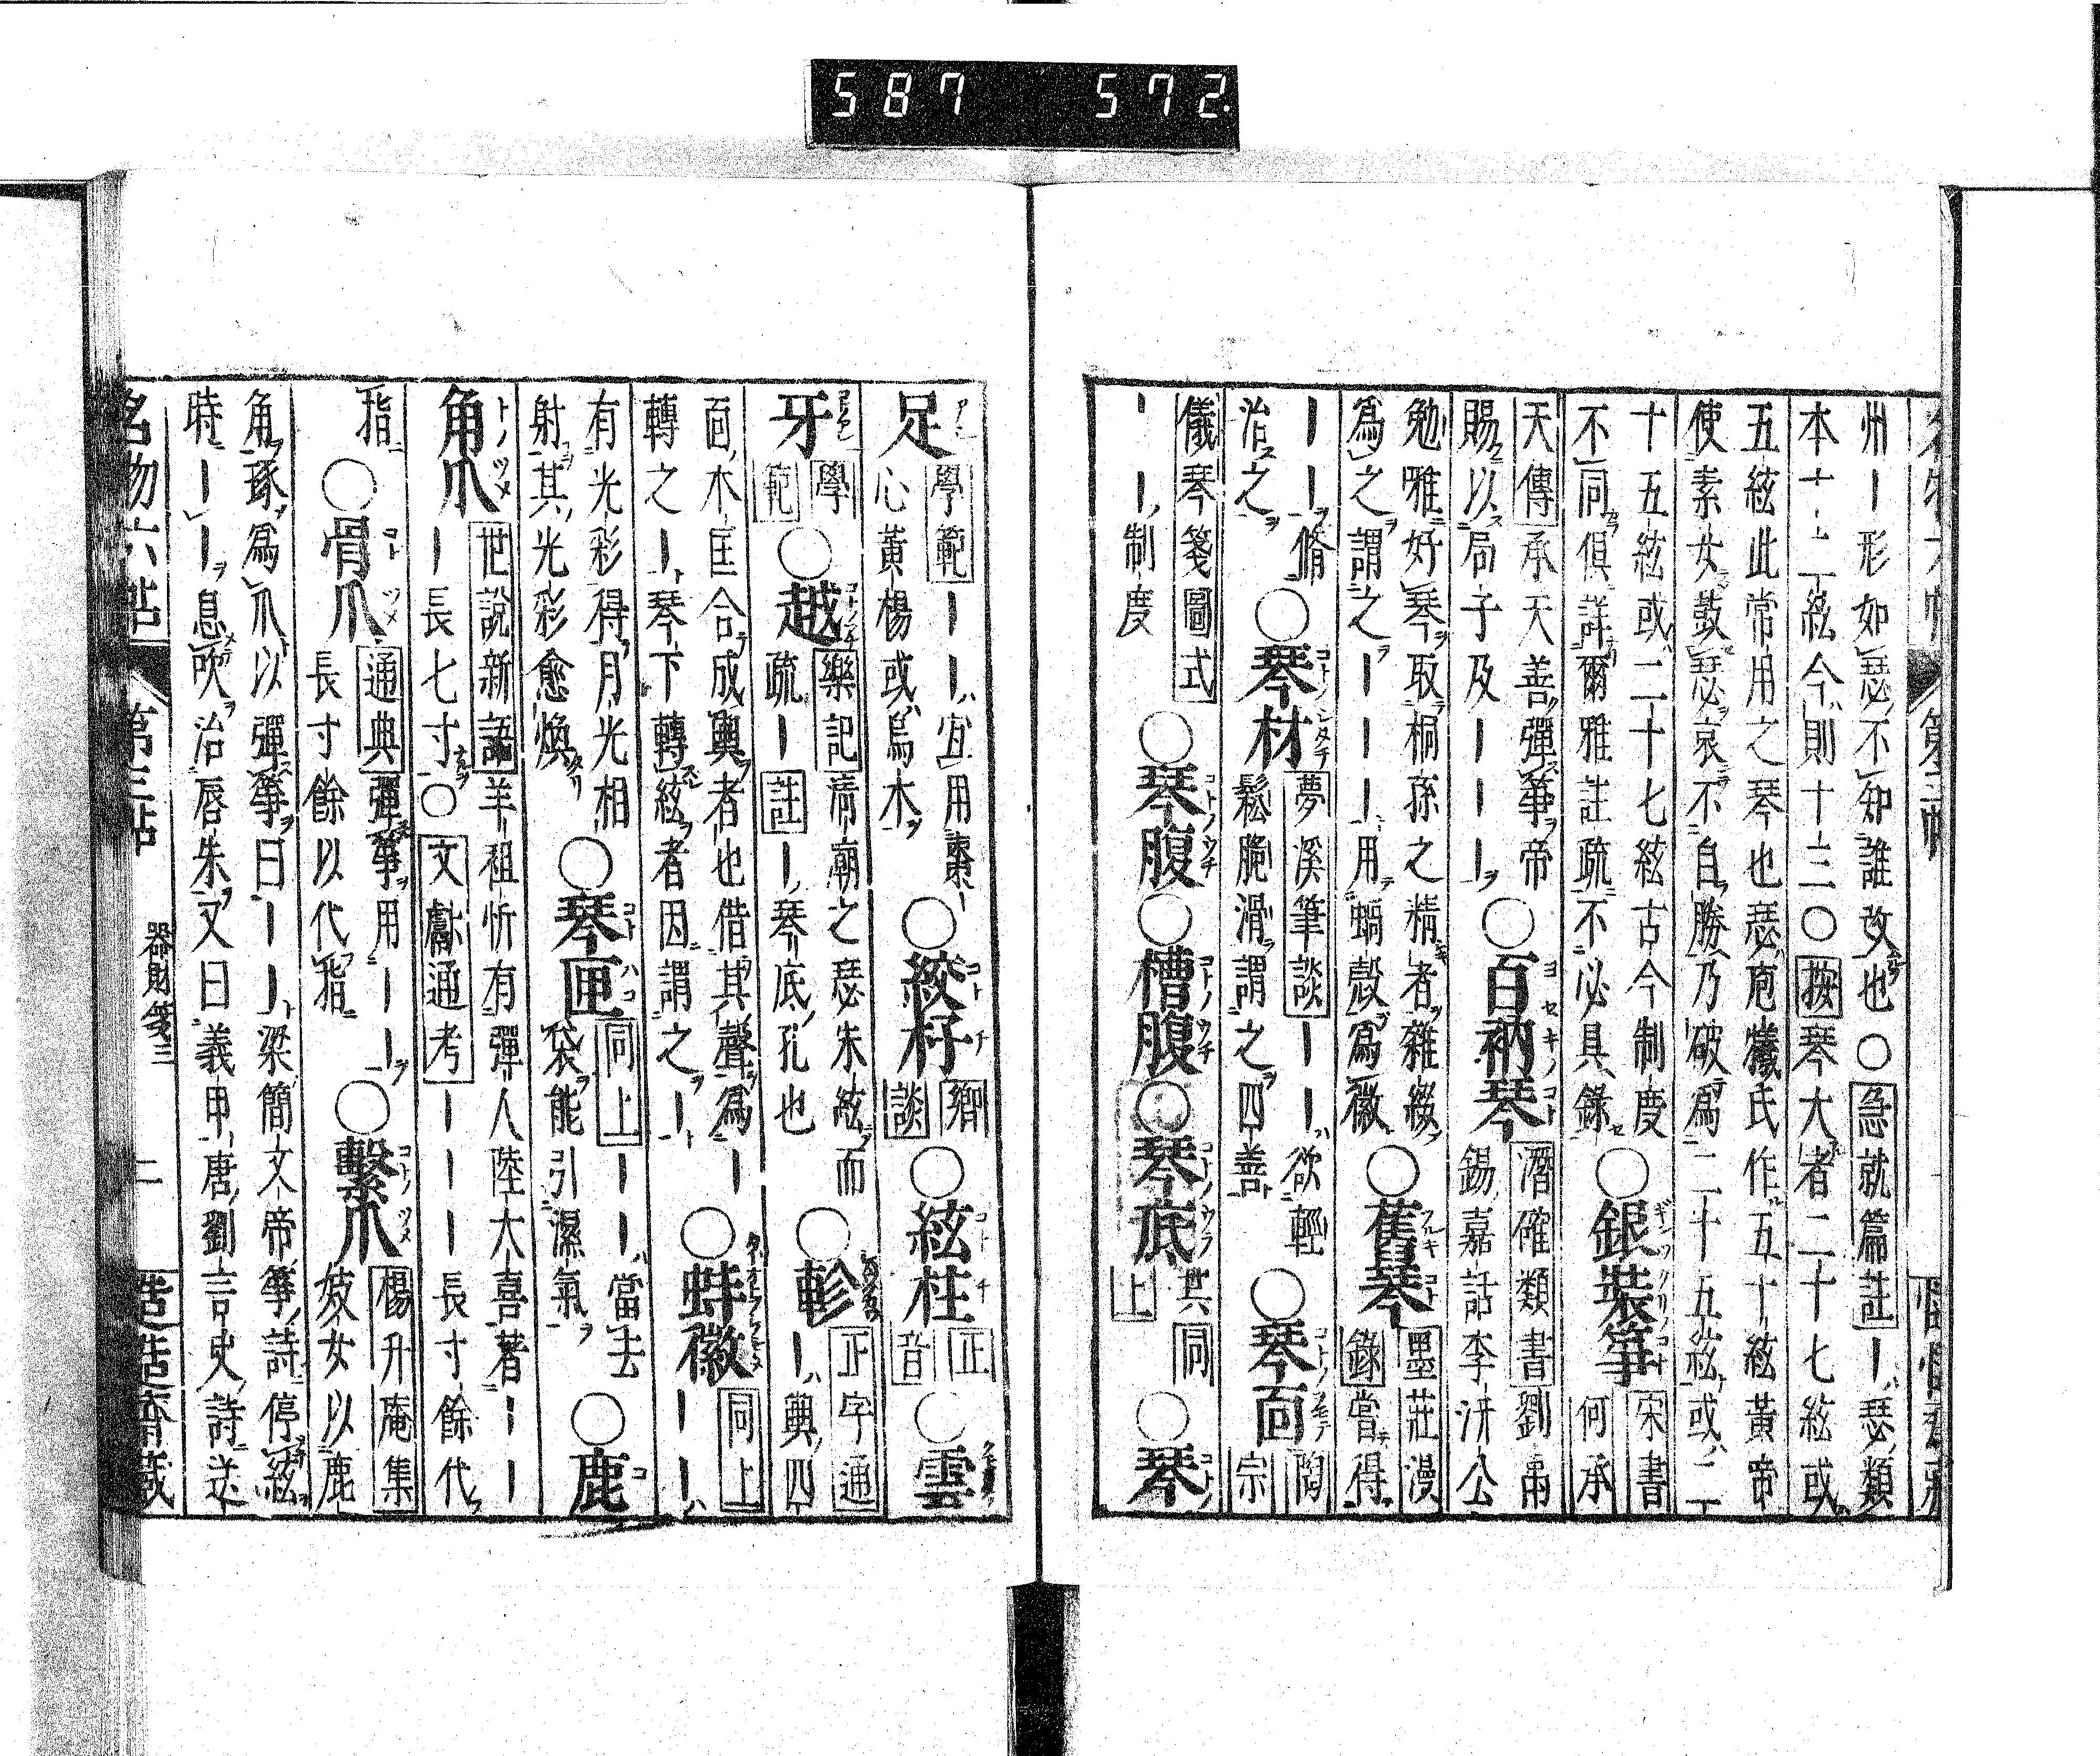 587 572.
州｜形如瑟不知誰改也○急就篇註｜瑟類
本十二絃今則十三○按琴大者二十七絃或
五絃此常用之琴也瑟庖犧氏作五十絃黃帝
使素女鼓瑟哀不自勝乃破爲二十五絃或二
十五絃或二十七絃古今制度
不同俱詳爾雅註疏不必具錄
○銀裝箏
宋書何承
天傳承天善彈箏帝
賜以局子及｜｜｜
○百衲琴
潛確類書劉禹
錫嘉話李汧公
勉雅好琴取桐孫之精者雜綴
爲之謂之｜｜｜用蝸殼爲徽
○舊琴
墨莊漫
錄嘗得
｜｜脩
治之
○琴材
夢溪筆談｜｜欲輕
鬆脆滑謂之四善
○琴面
闕
宗
儀琴箋圖式
｜｜制度
○琴腹○槽腹○琴底
共同
上
○琴
足
學範｜｜宜用棗
心黃楊或烏木
○絞杍
鄉
談
○絃柱
正
音
○雲
牙
學
範
○越
樂記淸廟之瑟朱絃而
疏｜註｜琴底孔也
○軫
正字通
｜輿四
面木匡合成輿者也借其聲爲｜
轉之｜琴下轉絃者因謂之｜
○蚌徽
同上
｜｜
有光彩得月光相
射其光彩愈煥
○琴匣
同上｜｜當去
袋能引濕氣
○鹿
角爪
世說新語羊祖忻有彈人陸大喜著｜｜
｜長七寸○文獻通考｜｜｜長寸餘代
指
○骨爪
通典彈箏用｜｜
長寸餘以代指
○繫爪
楊升庵集
彼女以鹿
角琢爲爪以彈箏曰｜｜梁簡文帝箏詩停絃
時｜｜息吹治唇朱又曰義甲唐劉言史詩迸
名物六帖 第三帖 器財箋三 二